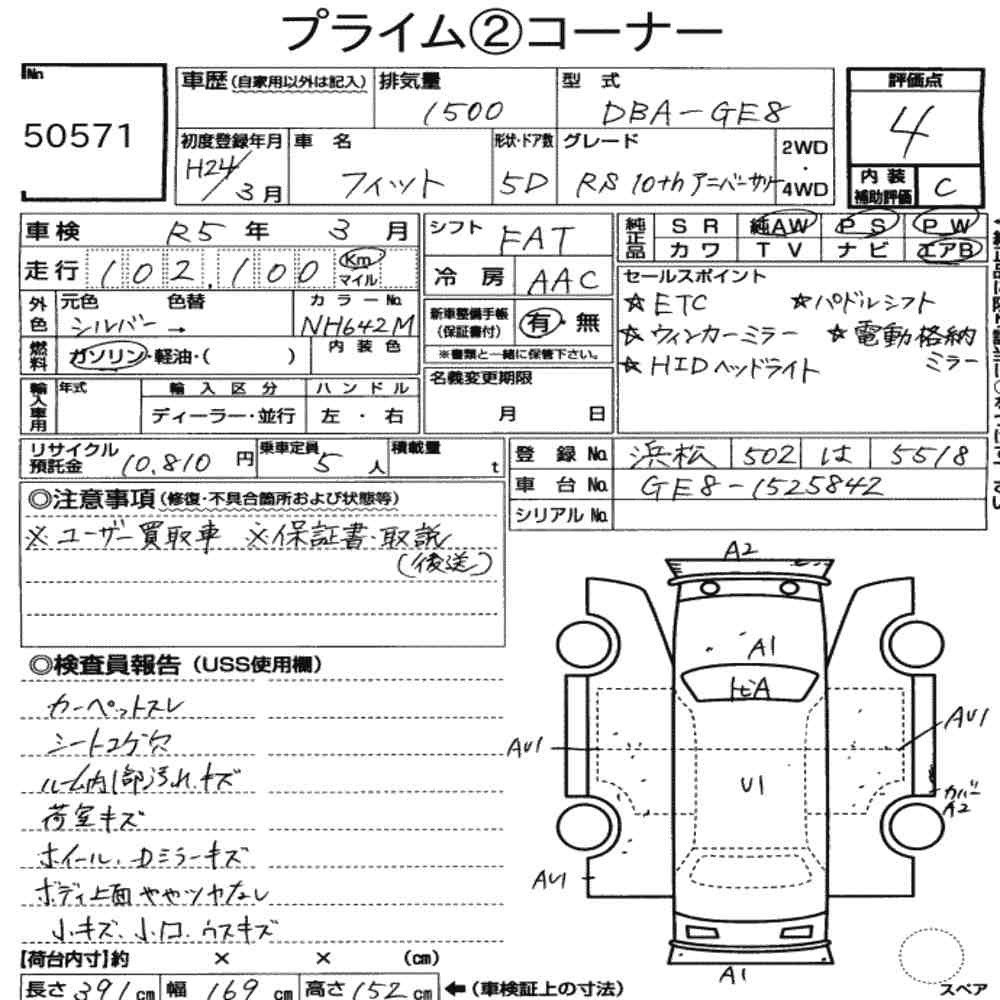 プライム②コーナー
No. 50571
車歴 (自家用以外は記入) 排気量 1500 型式 DBA-GE8
初度登録年月 H24/3月 車名 フィット 形状・ドア数 5D グレード RS 10th アニバーサリー 2WD・4WD
評価点 4
内装補助評価 C
車検 R5年 3月
走行 102,100 Km マイル
外色 元色 シルバー → 色替 カラーNo. NH642M
燃料 ガソリン・軽油・( ) 内装色
輸入車用 年式 輸入区分 ディーラー・並行 ハンドル 左・右
シフト FAT
冷房 AAC
新車整備手帳(保証書付) 有・無
※書類と一緒に保管下さい。
名義変更期限 月 日
純正品 SR 純AW PS PW
カワ TV ナビ エアB
セールスポイント
☆ETC ☆パドルシフト
☆ウィンカーミラー ☆電動格納ミラー
☆HIDヘッドライト
リサイクル預託金 10,810円 乗車定員 5人 積載量 t
登録No. 浜松 502 は 5518
車台No. GE8-1525842
シリアルNo.
◎注意事項(修復・不具合箇所および状態等)
※ユーザー買取車 ※保証書・取説
(後送)
◎検査員報告(USS使用欄)
カーペットスレ
シートコゲ穴
ルーム内部汚れ.キズ
荷室キズ
ホイール、Dミラーキズ
ボディ上面ややツヤなし
小キズ、小凹、ウスキズ
A2
A1
トビA
AU1
AU1
U1
カバーA2
AU1
A1
スペア
【荷台内寸】約 × × (cm)
長さ 391cm 幅 169cm 高さ 152cm ←(車検証上の寸法)